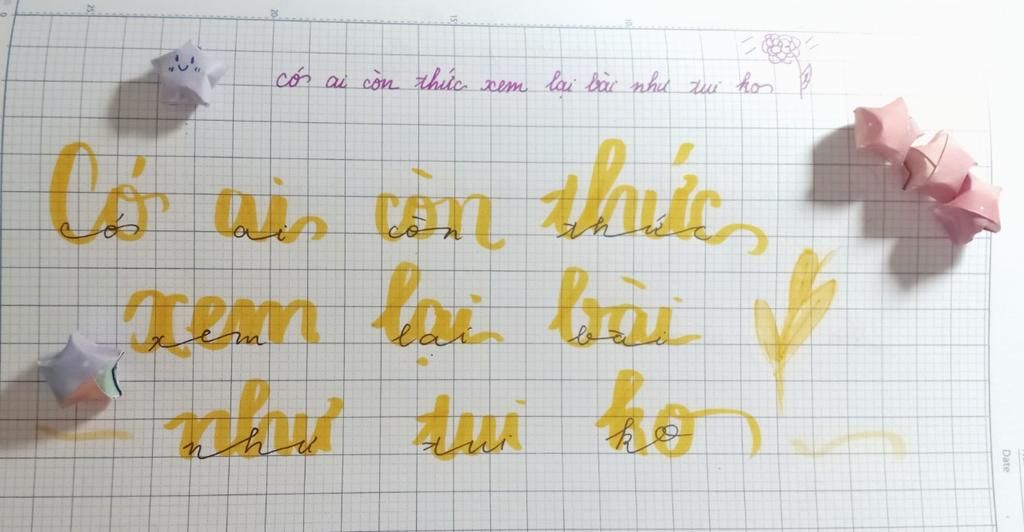 25 20 15 10
có ai còn thức xem lại bài như tui ko
Có ai còn thức
có ai còn thức
xem lại bài
xem lại bài
như tui ko
như tui ko
Date